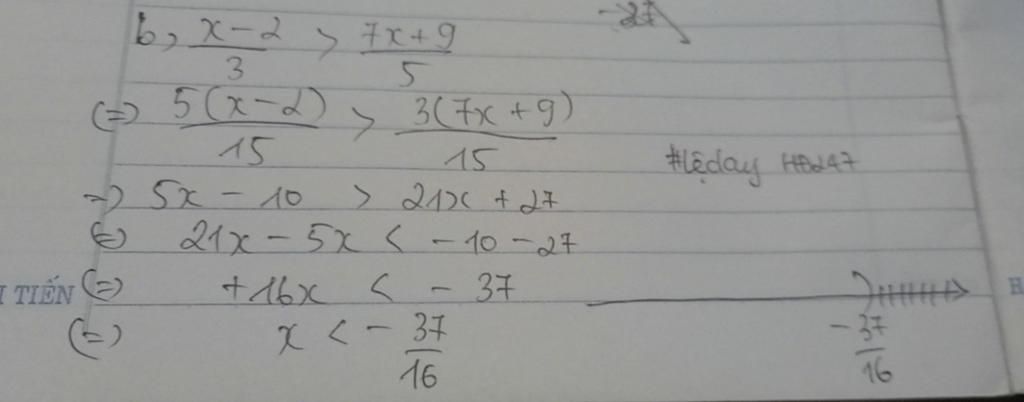 -27
b, x-2/3 > 7x+9/5
(=) 5(x-2)/15 > 3(7x+9)/15
#lệday HB247
=) 5x - 10 > 21x + 27
(=) 21x - 5x < -10 - 27
I TIẾN (=) +16x < - 37
(=) x < - 37/16
- 37/16
H